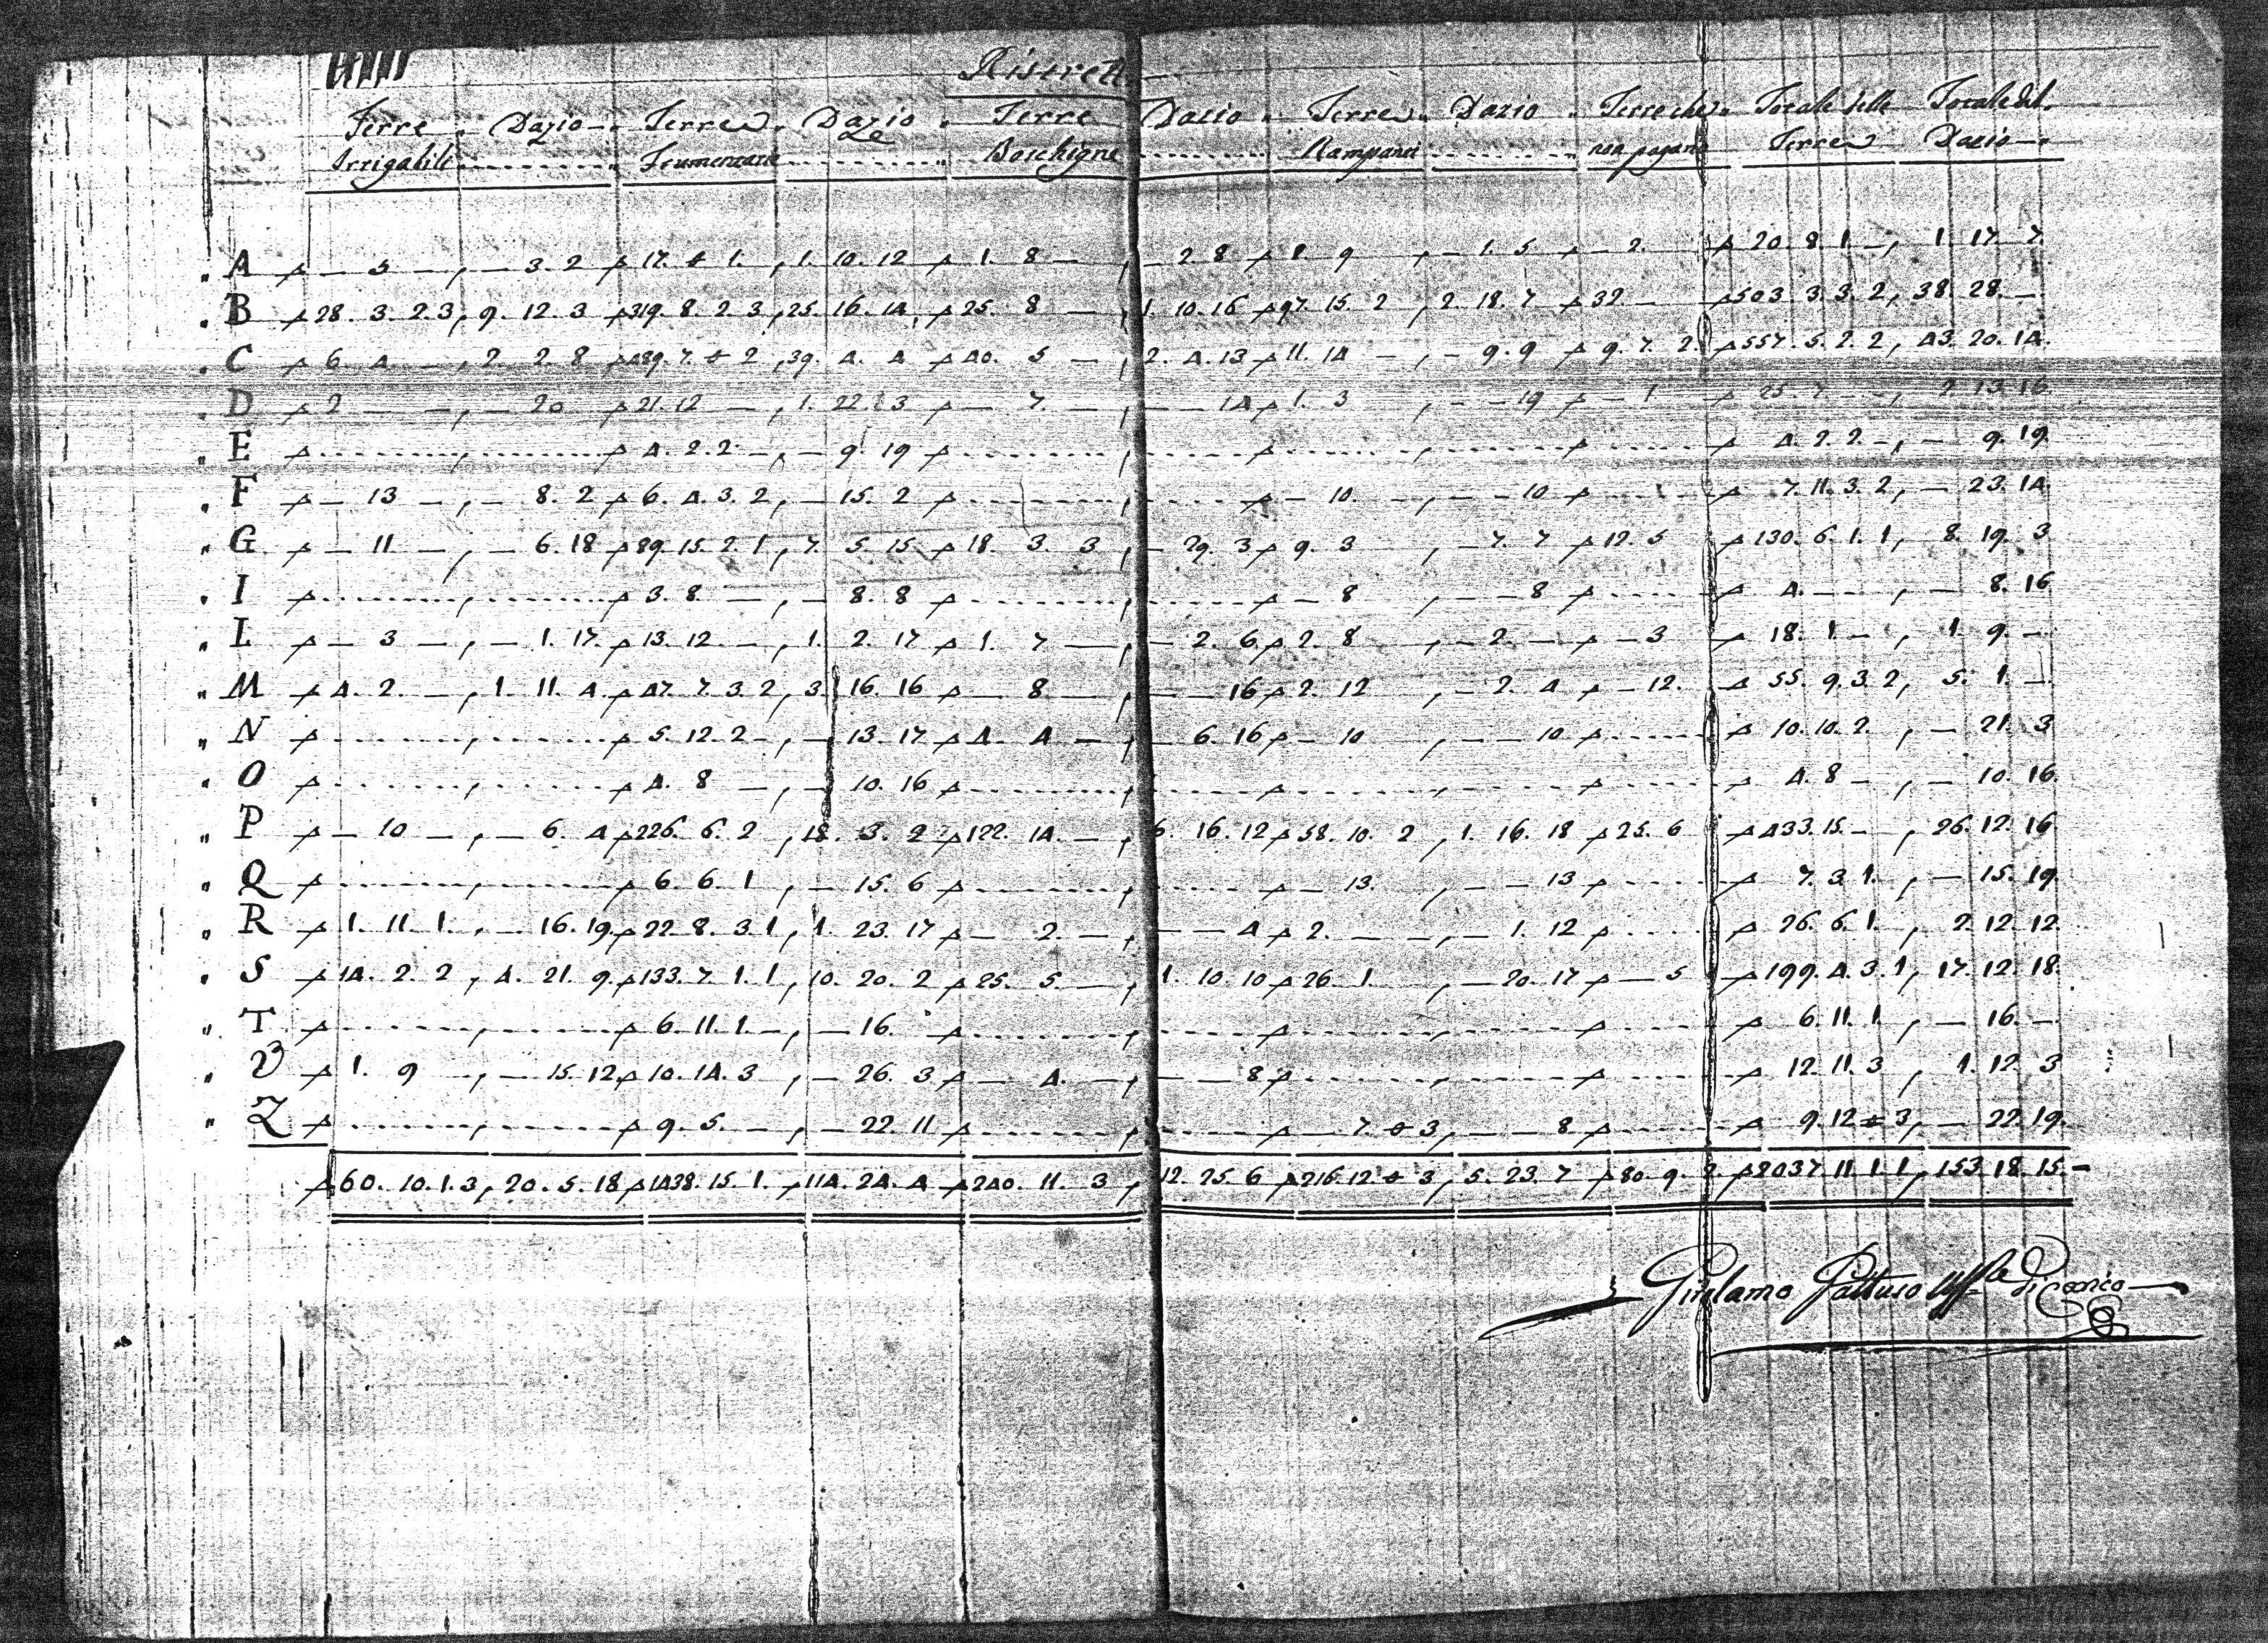 Ristretto
Terre Dazio Terre Dazio Terre Dazio Terre Dazio Terre che Totale delle Totale del
Irrigabile Frumentarie Boschigne Rampanti non pagano Terre Dazio
A — 5 — , — 3. 2 17. 1. , 1. 10. 12 1. 8 — , — 2. 8 1. 9 , — 1. 5 — 2. 20. 8. 1. — , 1. 17. 7.
B 28. 3. 2 3, 9. 12. 3 319. 8. 2 3, 25. 16. 14, 25. 8 — , 1. 10. 16 97. 15. 2 , 2. 18. 7 32 — 503. 3. 3. 2, 38. 28. —
C 6. 4. — , 2. 2. 8 489. 7. 2 , 39. 4. 4 40. 5 — , 2. 4. 13 11. 14 — , — 9. 9 9. 7. 2. 557. 5. 2. 2, 43. 20. 14.
D 2 — — , — 20 21. 12 — , 1. 22. 13 — 7. — , — — 14 1. 3 , — — 19 — 1 25. 7 — — , 2. 13. 16.
E 4. 2. 2 — , — 9. 19 4. 2. 2 — , — 9. 19.
F — 13 — , — 8. 2 6. 4. 3. 2, — 15. 2 — 10. — , — — 10 7. 11. 3. 2, — 23. 14
G — 11 — , — 6. 18 89. 15. 2. 1, 7. 5. 15 18. 3. 3 , — 29. 3 9. 3 , — 7. 7 12. 5 130. 6. 1. 1, 8. 19. 3
I 3. 8 — , — 8. 8 — 8 , — — 8 4. — — , — 8. 16
L — 3 — , — 1. 17. 13. 12. — , 1. 2. 17 1. 7 — , — 2. 6 2. 8 , — 2. — — 3 18. 1. — , 1. 9. —
M 4. 2. — , 1. 11. 4. 47. 7. 3. 2, 3. 16. 16 — 8 — , — — 16 2. 12 , — 2. 4 — 12. 55. 9. 3. 2, 5. 1. —
N 5. 12. 2 — , — 13. 17 4. 4 — , — 6. 16 — 10 , — — 10 10. 10. 2. , — 21. 3
O 4. 8 — , — 10. 16 4. 8 — , — 10. 16.
P — 10 — , — 6. 4 226. 6. 2 , 18. 3. 2 122. 14. — , 6. 16. 12 58. 10. 2 , 1. 16. 18 25. 6 433. 15. — , 26. 12. 16
Q 6. 6. 1 , — 15. 6 — 13. , — — 13 7. 3. 1. , — 15. 19.
R 1. 11. 1. , — 16. 19. 22. 8. 3 1, 1. 23. 17 — 2. — , — — 4 2. — — , — 1. 12 26. 6. 1. , 2. 12. 12.
S 14. 2. 2 , 4. 21. 9. 133. 7. 1. 1 , 10. 20. 2 25. 5. — , 1. 10. 10 26. 1. , — 20. 17 — 5 199. 4. 3. 1, 17. 12. 18.
T 6. 11. 1. — , — 16. 6. 11. 1. , — 16. —
V 1. 9 — , — 15. 12. 10. 14. 3 , — 26. 3 — 4. — , — — 8 12. 11. 3 , 1. 12. 3
Z 9. 5. — , — 22. 11 — 7. 3, — — 8 9. 12 3, — 22. 19.
60. 10. 1. 3, 20. 5. 18 1438. 15. 1. , 114. 24. 4 240. 11. 3 , 12. 25. 6 216. 12. 3, 5. 23. 7 80. 9. 2 2037. 11. 1. 1, 153. 18. 15. —
Girolamo Gattuso